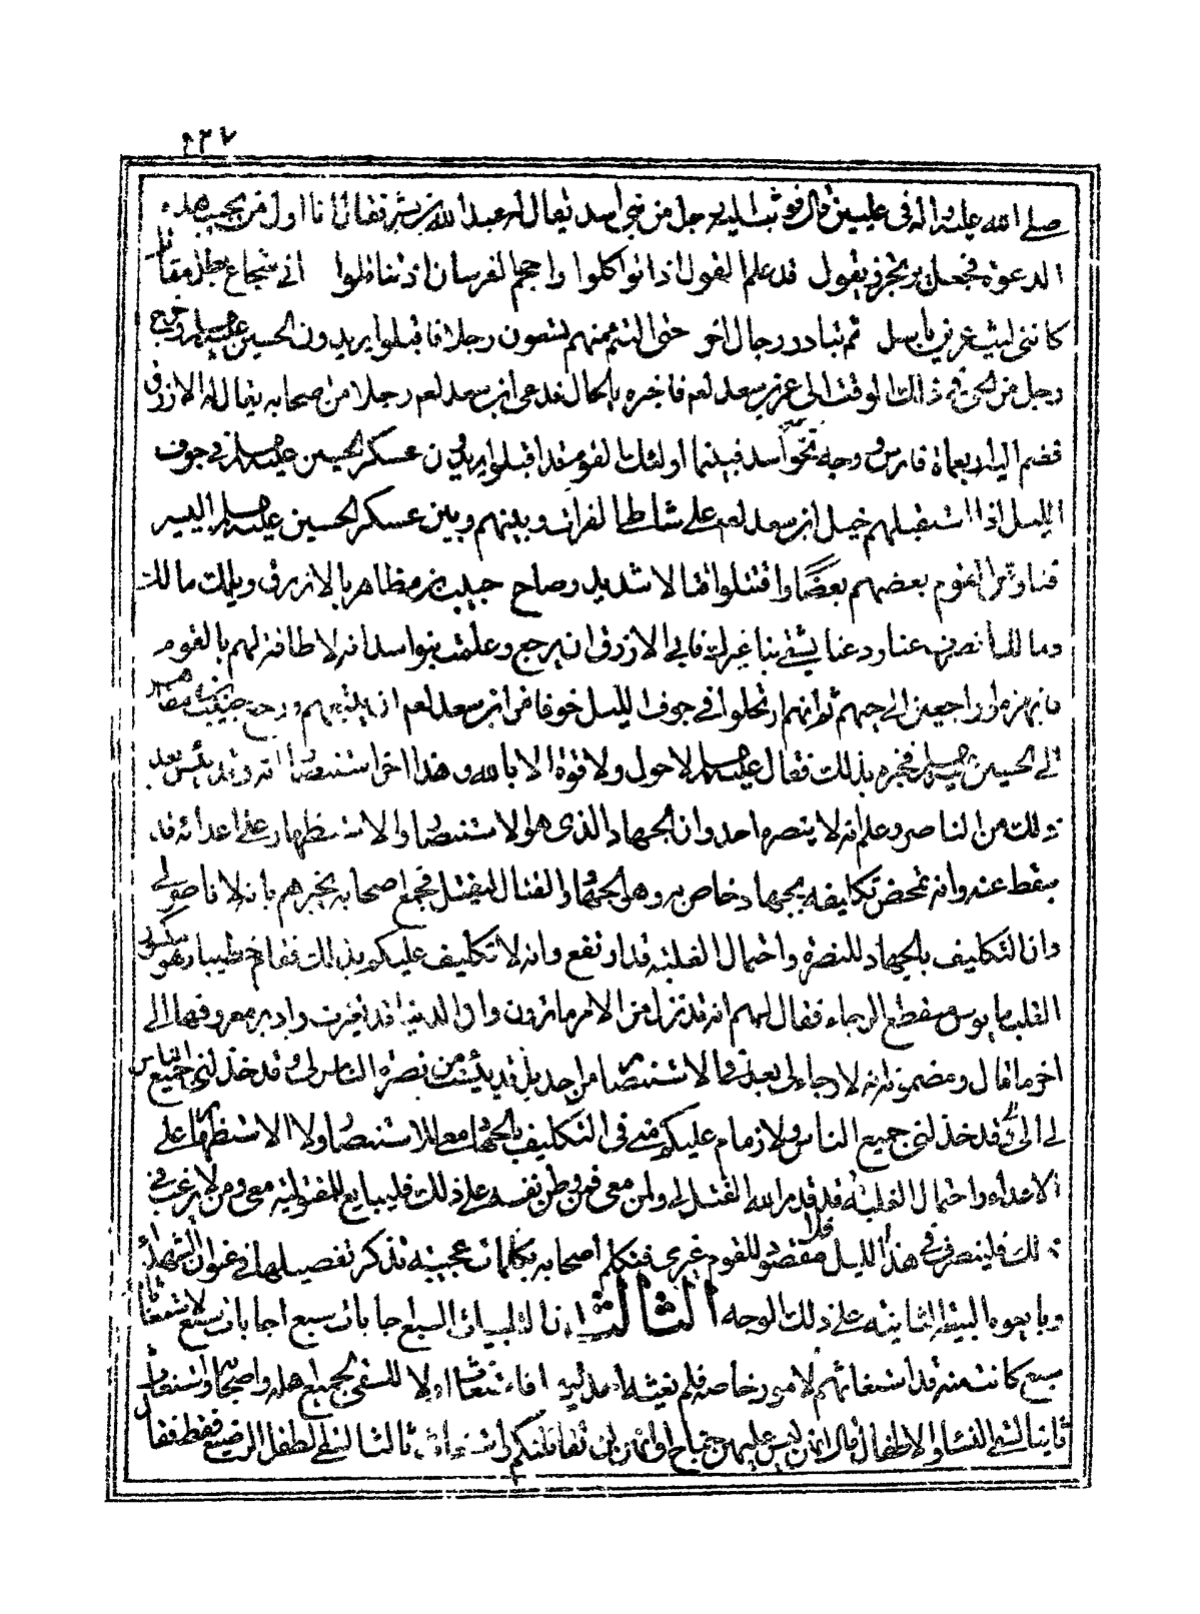 ٢٣٧
صلى الله عليه واله في عليين قال فوثب اليه رجل من بني اسد يقال له عبد الله بن بشر فقال انا اول من يجيب هذه
الدعوة فجعل يرتجز ويقول قد علم القول اذا تواكلوا واحجم الفرسان اذ تناقلوا اني شجاع بطل مقاتل
كانني ليث عرين باسل ثم تبادر رجال اخر حتى التئم منهم تسعون رجلا فاقبلوا يريدون الحسين عليه السلم وخرج
رجل من الحي في ذلك الوقت الى عمر بن سعد لعم فاخبره بالحال فدعى ابن سعد لعم رجلا من اصحابه يقال له الازرق
فضم اليه اربعمائة فارس ووجه نحو بني اسد فبينما اولئك القوم قد اقبلوا يريدون عسكر الحسين عليه السلم في جوف
الليل اذا استقبلهم خيل ابن سعد لعم على شاطئ الفرات وبينهم وبين عسكر الحسين عليه السلم اليسير
فناوش القوم بعضهم بعضًا واقتتلوا قتالا شديدا وصاح حبيب بن مظاهر بالازرق ويلك مالك
ومالنا انصرف عنا ودعنا يشقى بنا غيرك فابى الازرق ان يرجع وعلمت بنواسد انه لا طاقة لهم بالقوم
فانهزموا راجعين الى حيهم ثم انهم ارتحلوا في جوف الليل خوفا من ابن سعد لعم ان يبيتهم ورجع حبيب بن مظاهر
الى الحسين عليه السلم فخبره بذلك فقال عليه السلم لا حول ولا قوة الا بالله وهذا اخر استنصاراته وقد يئس بعد
ذلك من الناصر وعلم انه لا ينصره احد وان الجهاد الذي هو الاستنصار والاستظهار على اعدائه قد
سقط عنه وانه تمحض تكليفه بجهاد خاص به وهو الجهاد والقتال ليقتل فجمع اصحابه يخبرهم بانه لا ناصر لي
وان التكليف بالجهاد للنصرة واحتمال الغلبة قد ارتفع وانه لا تكليف عليكم بذلك فقام خطيبا وهو مكسور
القلب مايوس منقطع الرجاء فقال لهم انه قد نزل من الامر ما ترون وان الدنيا قد تغيرت وادبر معروفها الى
اخر ما قال ومضمونه انه لا رجاء لي بعد في الاستنصار من احد بل قد يئست من نصرة الناس لي وقد خذلني جميع الناس
لي الى وقد خذلني جميع الناس ولا زمام عليكم مني في التكليف بالجهاد معي للاستنصار ولا الاستظهار على
الاعداء واحتمال الغلبة قد قدر الله القتل لي ولمن معي فمن وطن نفسه على ذلك فليبايع للمقتولية معي ومن لا يرغب في
ذلك فلينصرف في هذا الليل فلا مقصود للقوم غيري فتكلم اصحابه بكلمات عجيبة نذكر تفصيلها في عنوان الشهداء
وبايعوه البيعة الثانية على ذلك الوجه الثالث ان التلبيات السبع اجابات سبع اجابات سبع لاستغاثات
سبع كانت منه قد استغاثهم لامور خاصة فلم يغثه احد فيه فاستغاث اولا للسقي لجميع اهله واصحابه واستغاث
ثانيا لسقي النساء والاطفال قال انهن ليس عليهن جناح وانما نحن نقاتلكم واستغاث ثالثا لسقي الطفل الرضيع فقط فقال